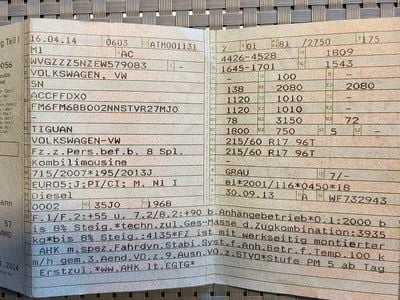 16.04.14 0603 ATH001131
M1 AC
WVGZZZ5NZEW579083 -
VOLKSWAGEN, VW
5N
ACCFFDX0
FM6FM6BB002NNSTVR27MJ0
-
TIGUAN
VOLKSWAGEN-VW
Fz.z.Pers.bef.b. 8 Spl.
Kombilimousine
715/2007*195/2013J
EURO5;J:PI/CI; M, N1 I
Diesel
0002 35J0 1968
2 01 81 /2750 175
4426-4528 1809
1645-1701 1543
- 100 -
138 2080 2080
1120 1010 -
1120 1010 -
78 3150 72
1800 750 5 -
215/60 R17 96T
215/60 R17 96T
-
GRAU 7/-
e1*2001/116*0450*18
30.09.13 A WF732943
F.1/F.2:+55 u. 7.2/8.2:+90 b.Anhängebetrieb*O.1:2000 b
is 8% Steig.*techn.zul.Ges-Masse d.Zugkombination:3935
kg*bis 8% Steig.:4135*FZ ist mit werkseitig montierter
AHK m.spez.Fahrdyn.Stabi.Syst.f.Anh.Betr.f.Temp.100 k
m/h gem.3.Aend.VO.z.9.Ausn.VO.z.STVO*Stufe PM 5 ab Tag
Erstzul.*ww.AHK lt.EGTG*